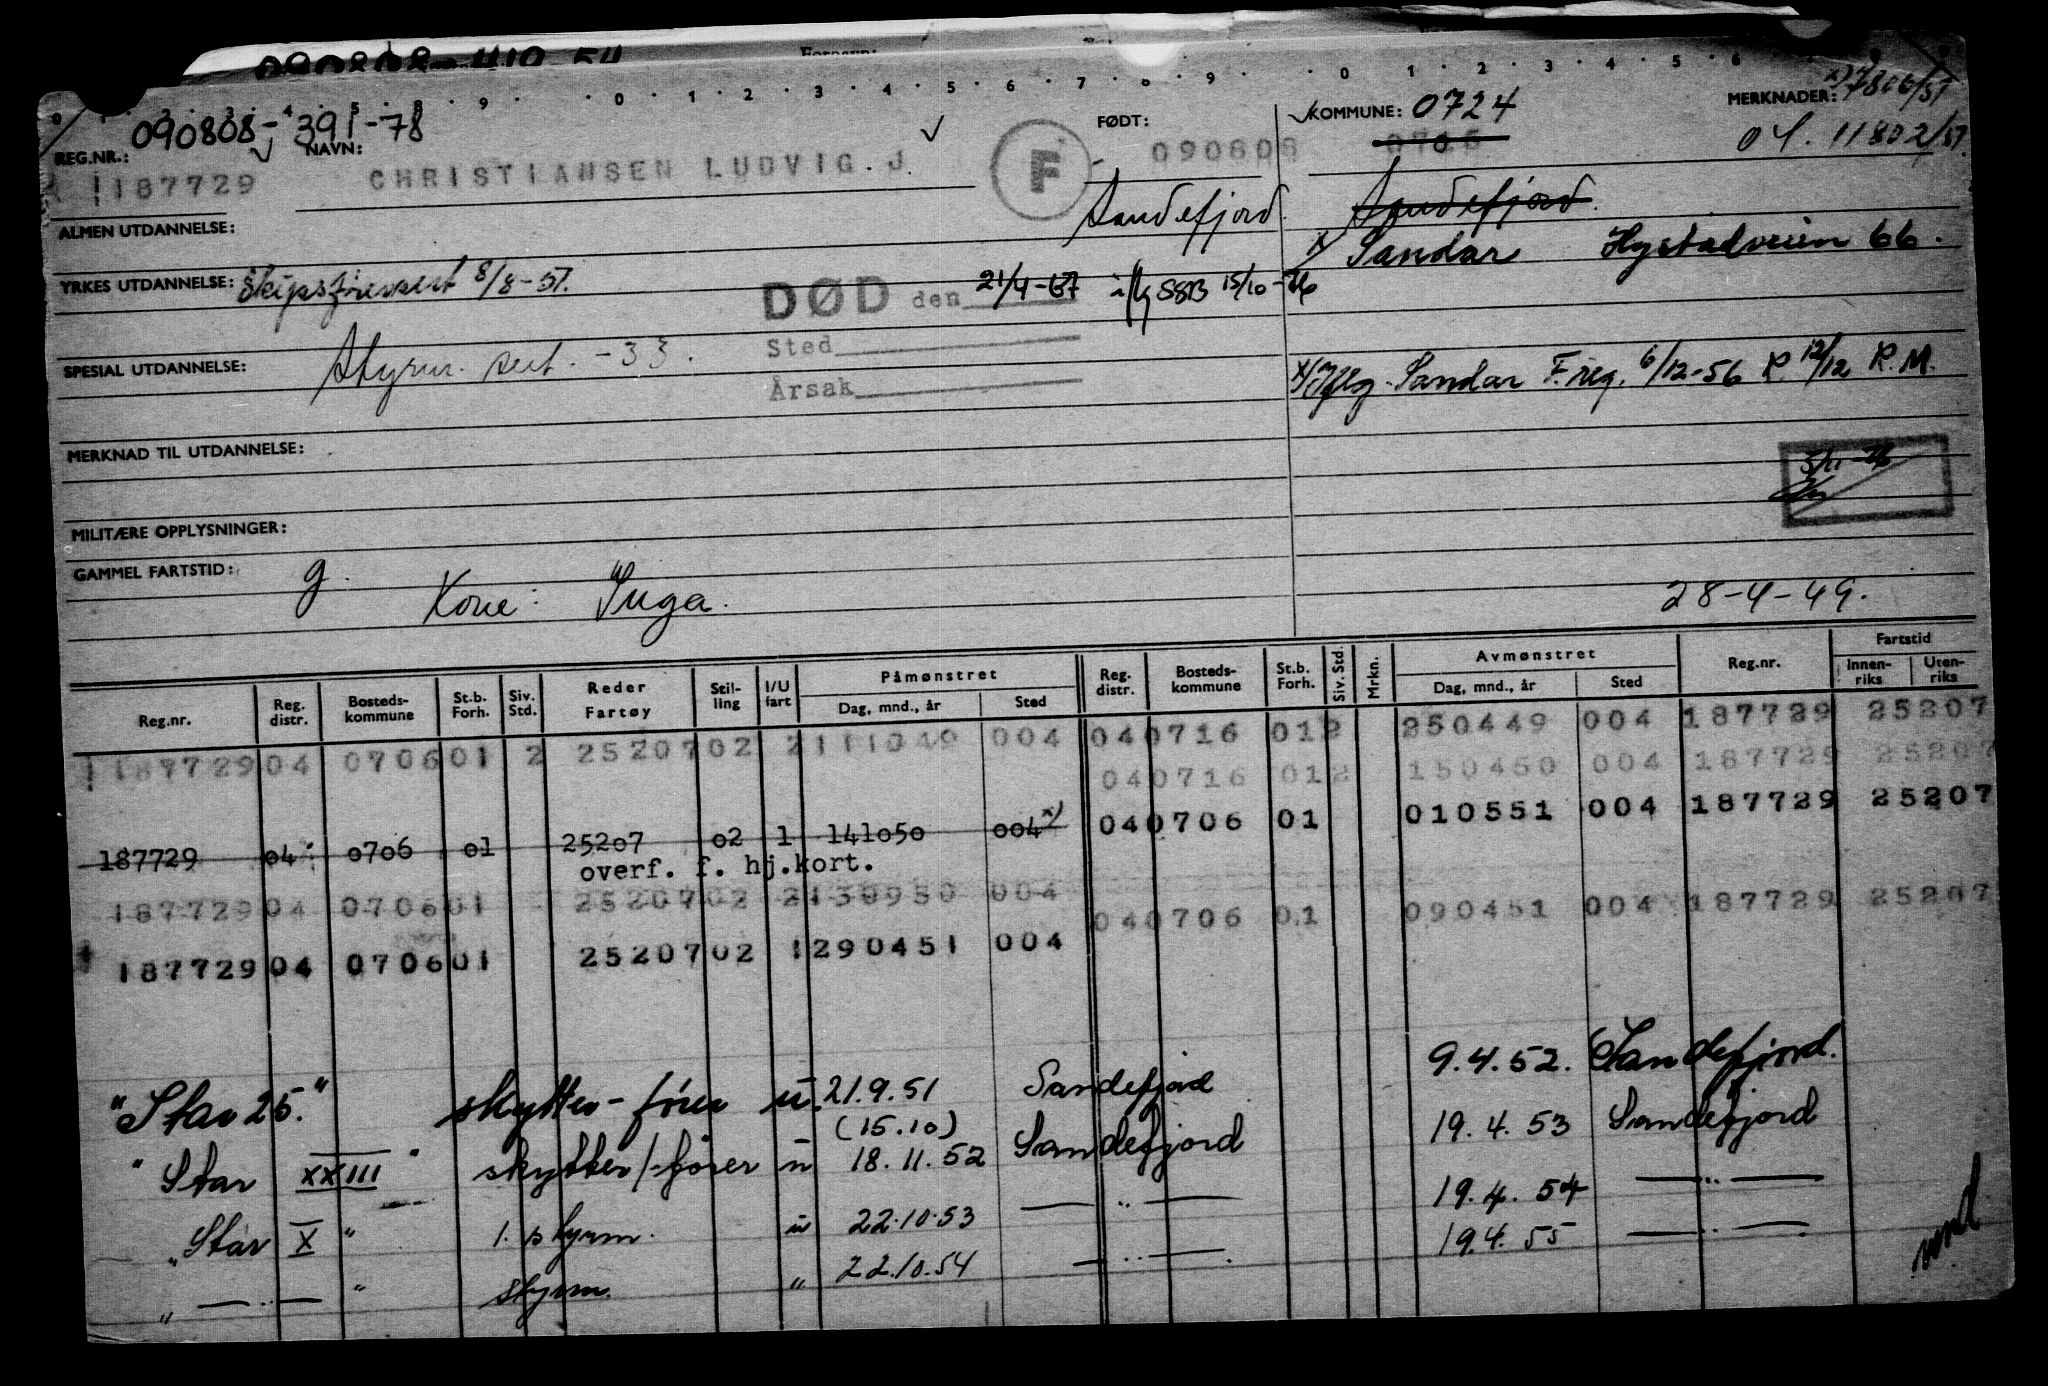 090808-410 54
Fornavn:
0 1 2 3 4 5 8 9 0 1 2 3 4 5 6 7 8 9 0 1 2 3 4 5 6
REG.NR.: 090808-391-78 NAVN: FØDT: KOMMUNE: 0724 MERKNADER: 27806/51
187729 CHRISTIANSEN LUDVIG.J. F 090808 0725 04. 11802/51.
ALMEN UTDANNELSE: Sandefjord. Sandefjord.
x/ Sandar Hystadveien 66.
YRKES UTDANNELSE: Skipsførersert 8/8-51. DØD den 21/4-67 iflg SSB 15/10-76
Sted
SPESIAL UTDANNELSE: Styrm. sert. -33.
Årsak
x/ Iflg. Sandar F.reg. 6/12-56 R. 12/12 R.M.
MERKNAD TIL UTDANNELSE:
5/11-76
MILITÆRE OPPLYSNINGER:
GAMMEL FARTSTID: g.
Kone: Inga. 28-4-49.
Reg.nr. Reg. distr. Bosteds-kommune St.b. Forh. Siv. Std. Reder Fartøy Stil-ling I/U fart Påmønstret Dag, mnd., år Sted Reg. distr. Bosteds-kommune St.b. Forh. Siv. Std. Mrkn. Avmønstret Dag, mnd., år Sted Reg.nr. Fartstid Innen-riks Uten-riks
040716 012 250449 004 187729 25207
187729 04 0706 01 2 25207 02 2 111049 004 040716 012 150450 004 187729 25207
187729 04 0706 01 25207 02 1 141050 004 x) 040706 01 010551 004 187729 25207
overf. f. hj.kort.
187729 04 0706 01 25207 02 2 130950 004 040706 01 090451 004 187729 25207
187729 04 0706 01 25207 02 1 290451 004
"Star 25." skytter-fører u. 21.9.51 Sandefjord 9.4.52. Sandefjord.
(15.10)
"Star XXIII" skytter/-fører u 18.11.52 Sandefjord 19.4.53 Sandefjord
"Star X" 1. styrm. u 22.10.53 —„— 19.4.54 —„—
„ —„— " styrm. „ 22.10.54 —„— 19.4.55 —„—